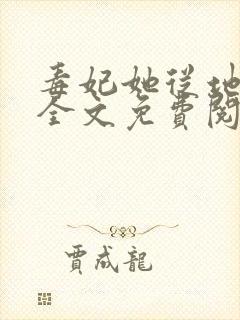 毒妃她從地
全文免費閱
賈成龍